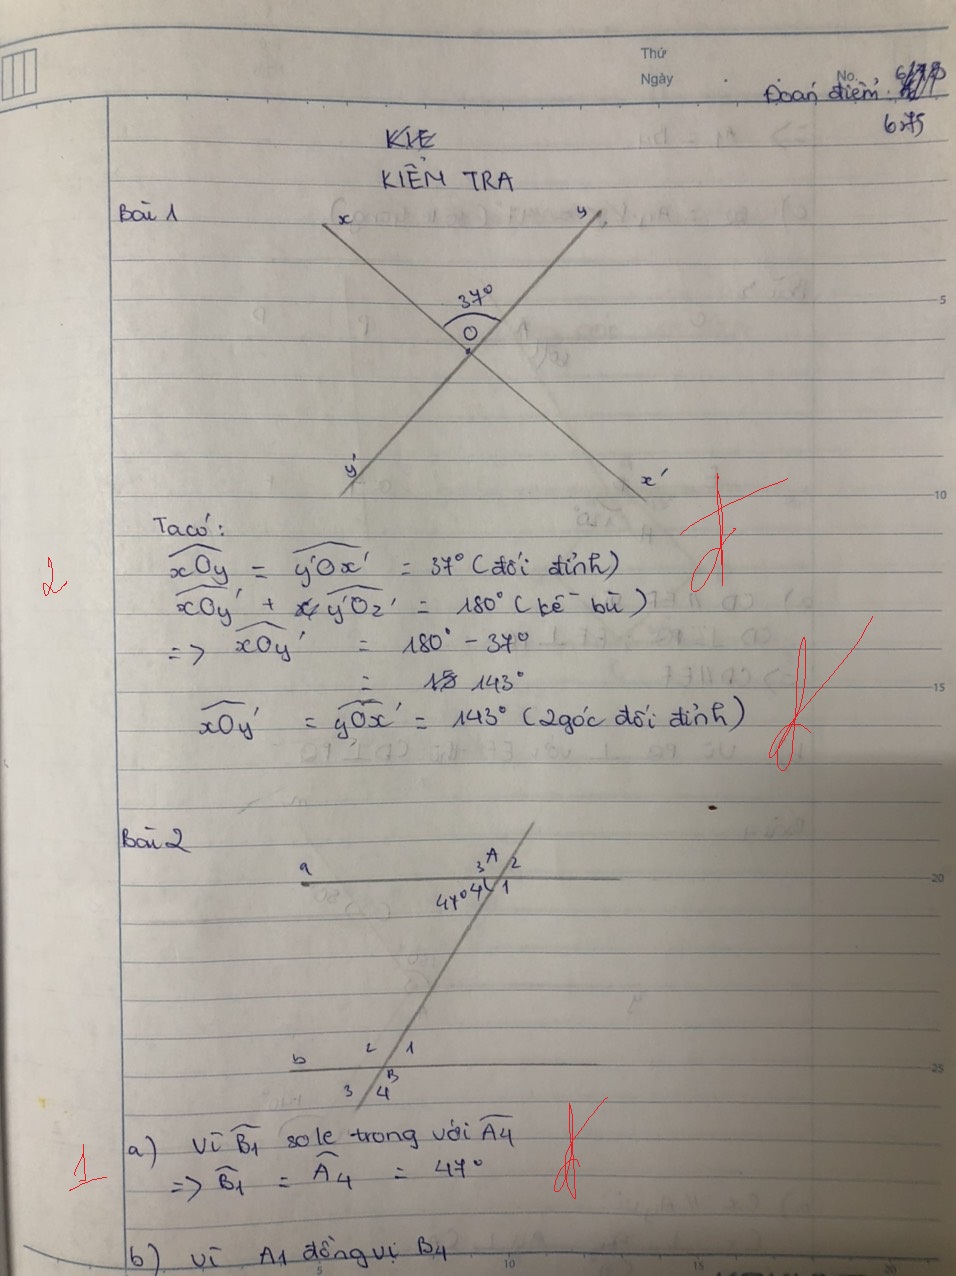 Thứ
Ngày
No.
Đoán điểm:
6,75
KIE
KIỂM TRA
Bài 1
x
y
37°
O
y'
x'
5
10
Ta có:
xOy = y'Ox' = 37° (đối đỉnh)
2
xOy' + y'Oz' = 180° (kề bù)
=> xOy' = 180° - 37°
= 143°
15
xOy' = yOx' = 143° (2 góc đối đỉnh)
Bài 2
a
3 A 2
47° 4 1
20
b
2 1
B
3 4
25
a) Vì B1 so le trong với A4
1
=> B1 = A4 = 47°
b) Vì A1 đồng vị B4
5
10
15
20